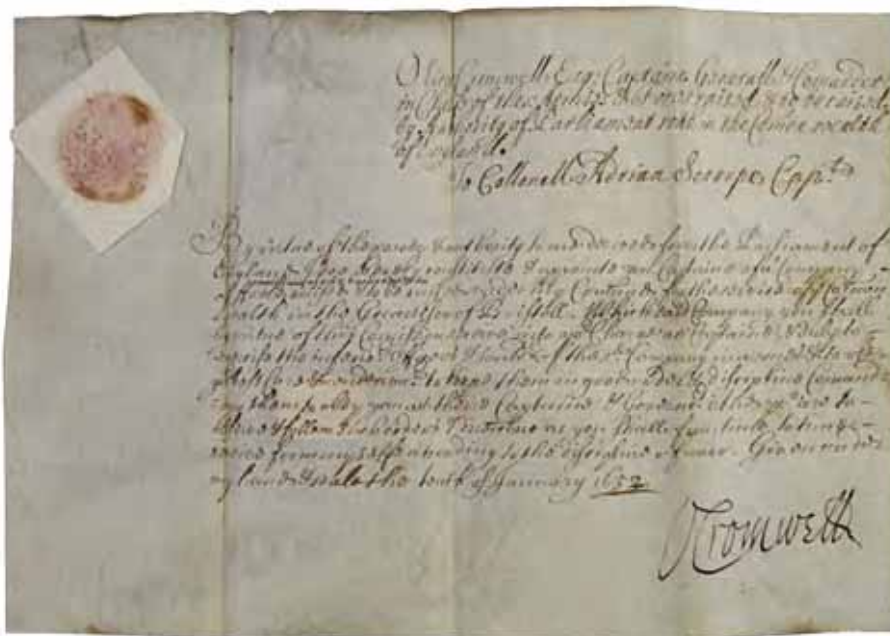 Oliver Cromwell Esq: Captaine Generall & Comander
in Cheif of the Armies & forces raised & to be raised
by Authority of Parliament within the Comon wealth
of England.
To Collonell Adrian Scroope, Capt
By virtue of the power & authority to me derived from the Parliament of
England I doe hereby constitute & appoint you Captaine of a Company
of foote under my Comand for the service of the Comon
wealth in the Garrison of Bristoll Which said Company you shall
by virtue of this Comission into yor Charge as Captaine & duly
exercise the inferior Officers & Souldiers of the sd Company in armes & to use
yor best care & endeavour to keepe them in good order & discipline Comand
ing them to obey you as theire Captaine
observe & follow such orders & directions as you shall from time to time re
ceive from my selfe according to the discipline of warr. Given under
my hand & seale the tenth of January 1652
OCromwell